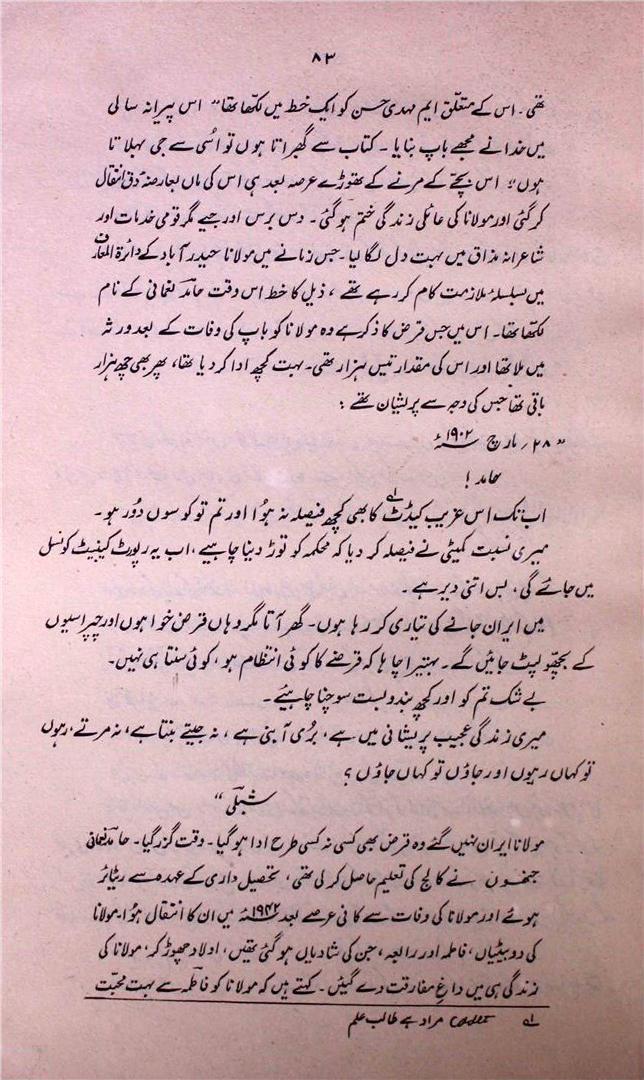 ۸۳
تھی۔ اس کے متعلق ایم مہدی حسن کو ایک خط میں لکھا تھا” اس پیرانہ سالی
میں خدا نے مجھے باپ بنایا۔ کتاب سے گھبراتا ہوں تو اُسی سے جی بہلاتا
ہوں“ اس بچّے کے مرنے کے تھوڑے عرصہ بعد ہی اس کی ماں بعارضۂ دق انتقال
کرگئی اور مولانا کی عائلی زندگی ختم ہوگئی۔ دس برس اور جیے مگر قومی خدمات اور
شاعرانہ مذاق میں بہت دل لگا لیا۔ جس زمانے میں مولانا حیدرآباد کے دائرۃ المعارف
میں بسلسلۂ ملازمت کام کر رہے تھے، ذیل کا خط اس وقت حامد نعمانی کے نام
لکھا تھا۔ اس میں جس قرض کا ذکر ہے وہ مولانا کو باپ کی وفات کے بعد ورثہ
میں ملا تھا اور اس کی مقدار تیس ہزار تھی۔ بہت کچھ ادا کر دیا تھا، پھر بھی چھ ہزار
باقی تھا جس کی وجہ سے پریشان تھے :
” ۲۸؍ مارچ ۱۹۰۲ء
حامد!
اب تک اس غریب کیڈٹ۱ کا بھی کچھ فیصلہ نہ ہوُا اور تم تو کوسوں دُور ہو۔
میری نسبت کمیٹی نے فیصلہ کر دیا کہ محکمہ کو توڑ دینا چاہیے، اب یہ رپورٹ کیبنیٹ کونسل
میں جائے گی، بس اتنی دیر ہے۔
میں ایران جانے کی تیاری کر رہا ہوں۔ گھر آتا مگر وہاں قرض خواہوں اور چپراسیوں
کے بچھّو لپٹ جائیں گے۔ بہتیرا چاہا کہ قرضے کا کوئی انتظام ہو، کوئی سنتا ہی نہیں۔
بے شک تم کو اور کچھ بندوبست سوچنا چاہیئے۔
میری زندگی عجیب پریشانی میں ہے، بُری آ بنی ہے، نہ جیتے بنتا ہے، نہ مرتے، رہوں
تو کہاں رہوں اور جاؤں تو کہاں جاؤں؟
شبلی “
مولانا ایران نہیں گئے وہ قرض بھی کسی نہ کسی طرح ادا ہوگیا۔ وقت گزر گیا۔ حامد نعمانی
جنھوں نے کالج کی تعلیم حاصل کر لی تھی، تحصیل داری کے عہدہ سے ریٹائر
ہوئے اور مولانا کی وفات سے کافی عرصے بعد ۱۹۴۲ء میں ان کا انتقال ہوُا۔ مولانا
کی دو بیٹیاں، فاطمہ اور رابعہ، جن کی شادیاں ہوگئی تھیں، اولاد چھوڑ کر، مولانا کی
زندگی ہی میں داغِ مفارقت دے گئیں۔ کہتے ہیں کہ مولانا کو فاطمہ سے بہت محبّت
۱ Cadet مراد ہے طالب علم